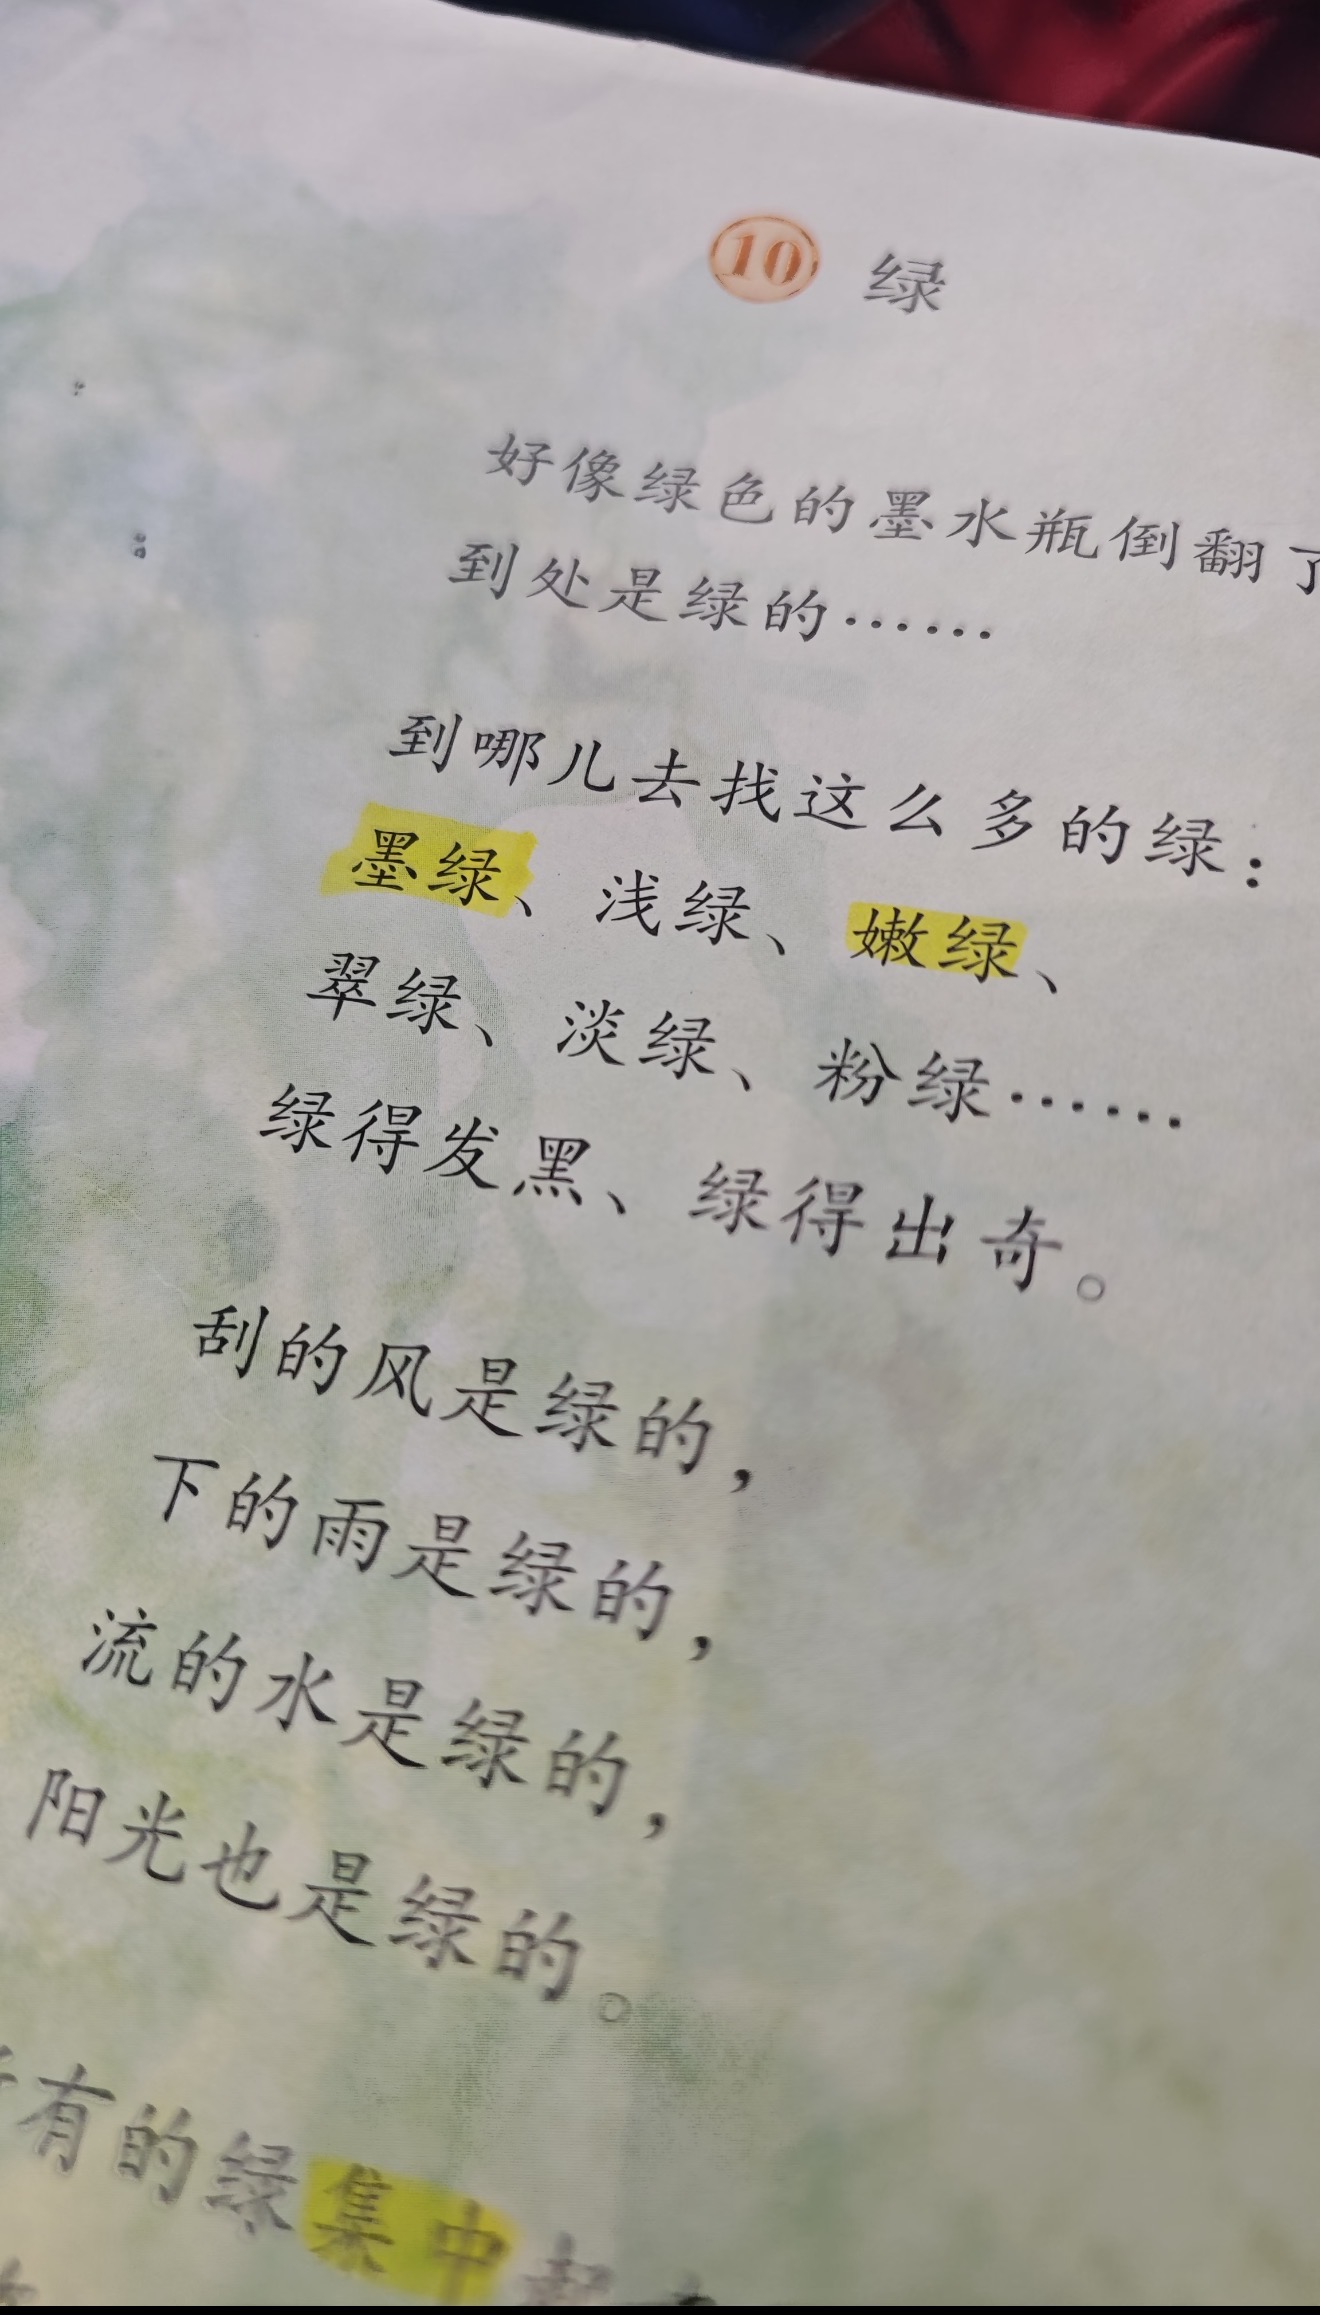 10 绿
好像绿色的墨水瓶倒翻了
到处是绿的……
到哪儿去找这么多的绿：
墨绿、浅绿、嫩绿、
翠绿、淡绿、粉绿……
绿得发黑、绿得出奇。
刮的风是绿的，
下的雨是绿的，
流的水是绿的，
阳光也是绿的。
有的绿集中起